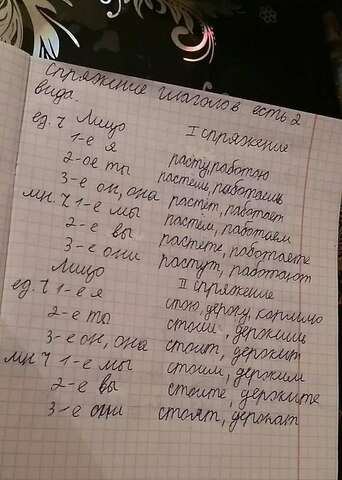 спряжение глаголов есть 2
вида.
ед. ч Лицо I спряжение
1-е я расту, работою
2-ое ты растешь, работаешь
3-е он, она растёт, работает
мн. ч 1-е мы растём, работаем
2-е вы растете, работаете
3-е они растут, работают
Лицо II спряжение
ед. ч 1-е я стою, держу, кормлю
2-е ты стоиш, держишь
3-е он, она стоит, держит
мн ч 1-е мы стоим, держим
2-е вы стоите, держите
3-е они стоят, держат